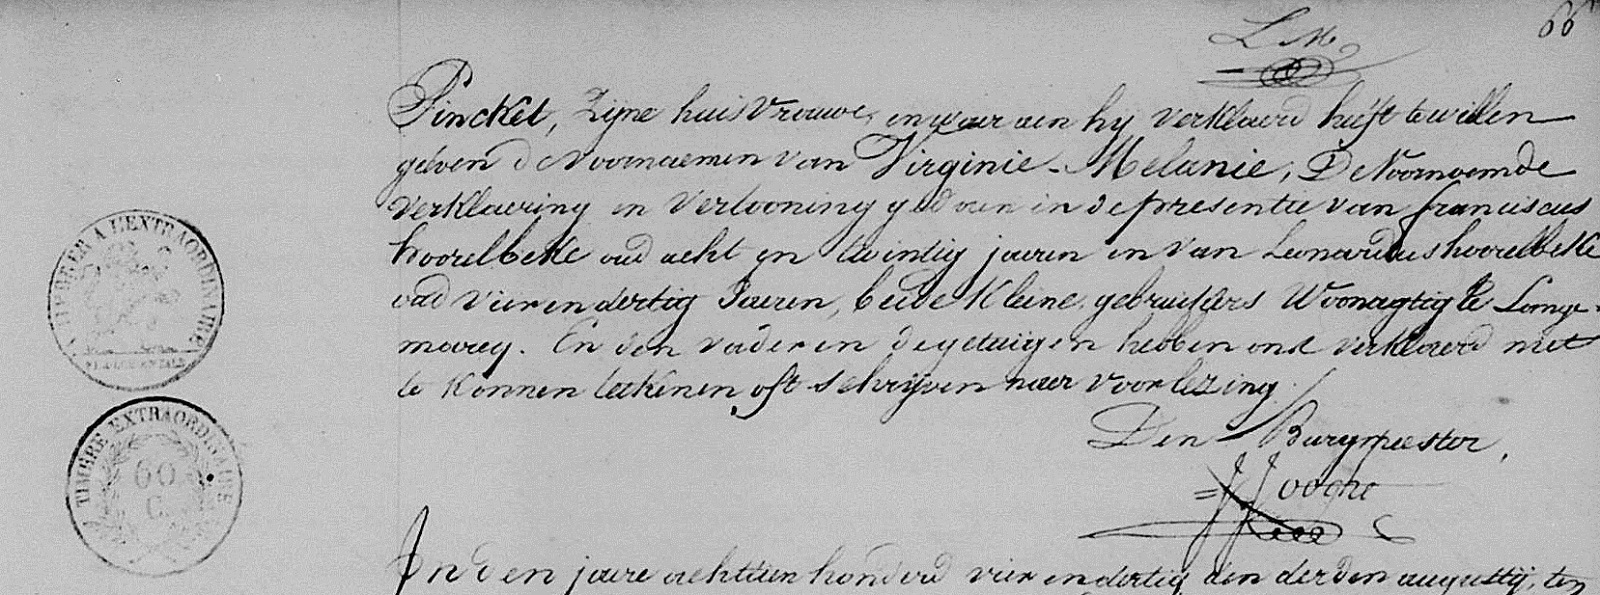 66
L M
Pincket, Zijne huisvrouwe, en waer aen hy verklaerd heeft te willen
geven de Voornaemen van Virginie-Melanie, De Voornoemde
verklaering en Vertooning gedaen in de presentie van franciscus
hoorelbeke oud acht en twintig jaeren en van Leonardus hoorelbeke
oud vier en dertig Jaeren, beide Kleine gebruijkers Woonagtig te Lange-
marcq. En den vader en de getuigen hebben ons verklaerd niet
te konnen teekenen oft schrijven naer voorlezing.
Den Burgmeester,
J Jooghe
TIMBRE EXTRAORDINAIRE
60
C.
In den jaere achttien honderd vier en dertig den derden augusty, ten